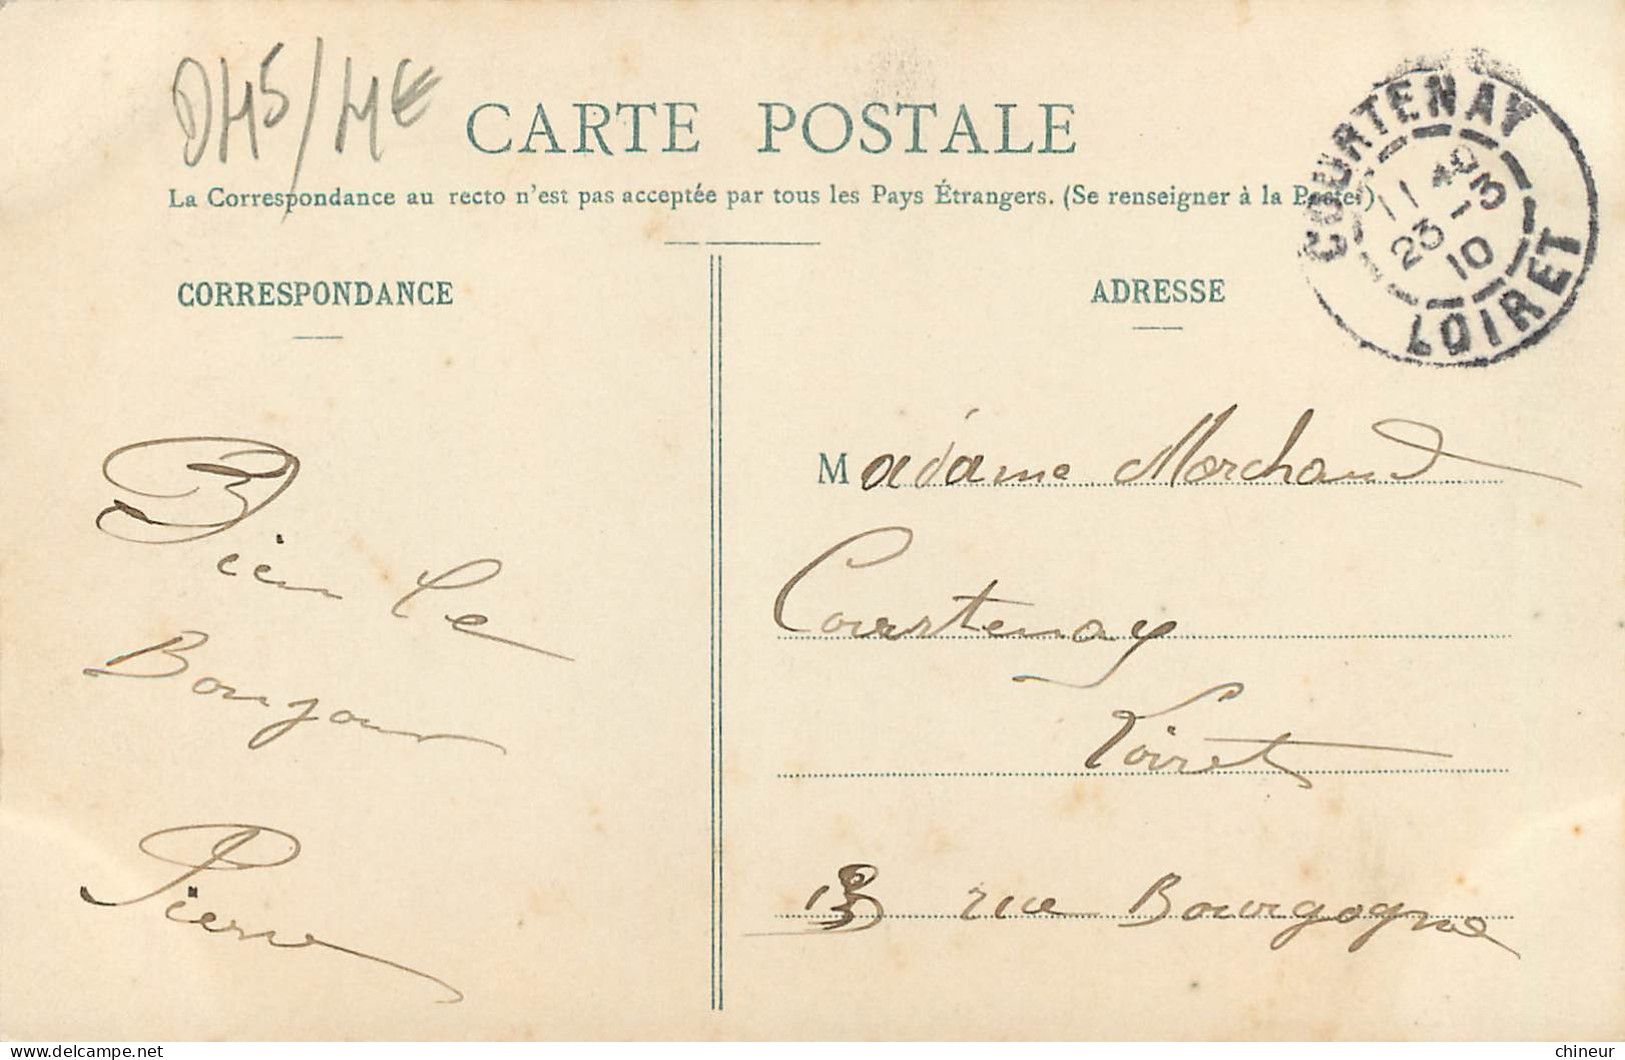 CARTE POSTALE
La Correspondance au recto n'est pas acceptée par tous les Pays Étrangers. (Se renseigner à la Poste)
COURTENAY
11 40
23 - 3
10
LOIRET
CORRESPONDANCE
Bien le
Bonjour
Pierre
ADRESSE
Madame Marchand
Courtenay
Loiret
rue Bourgogne
chineur